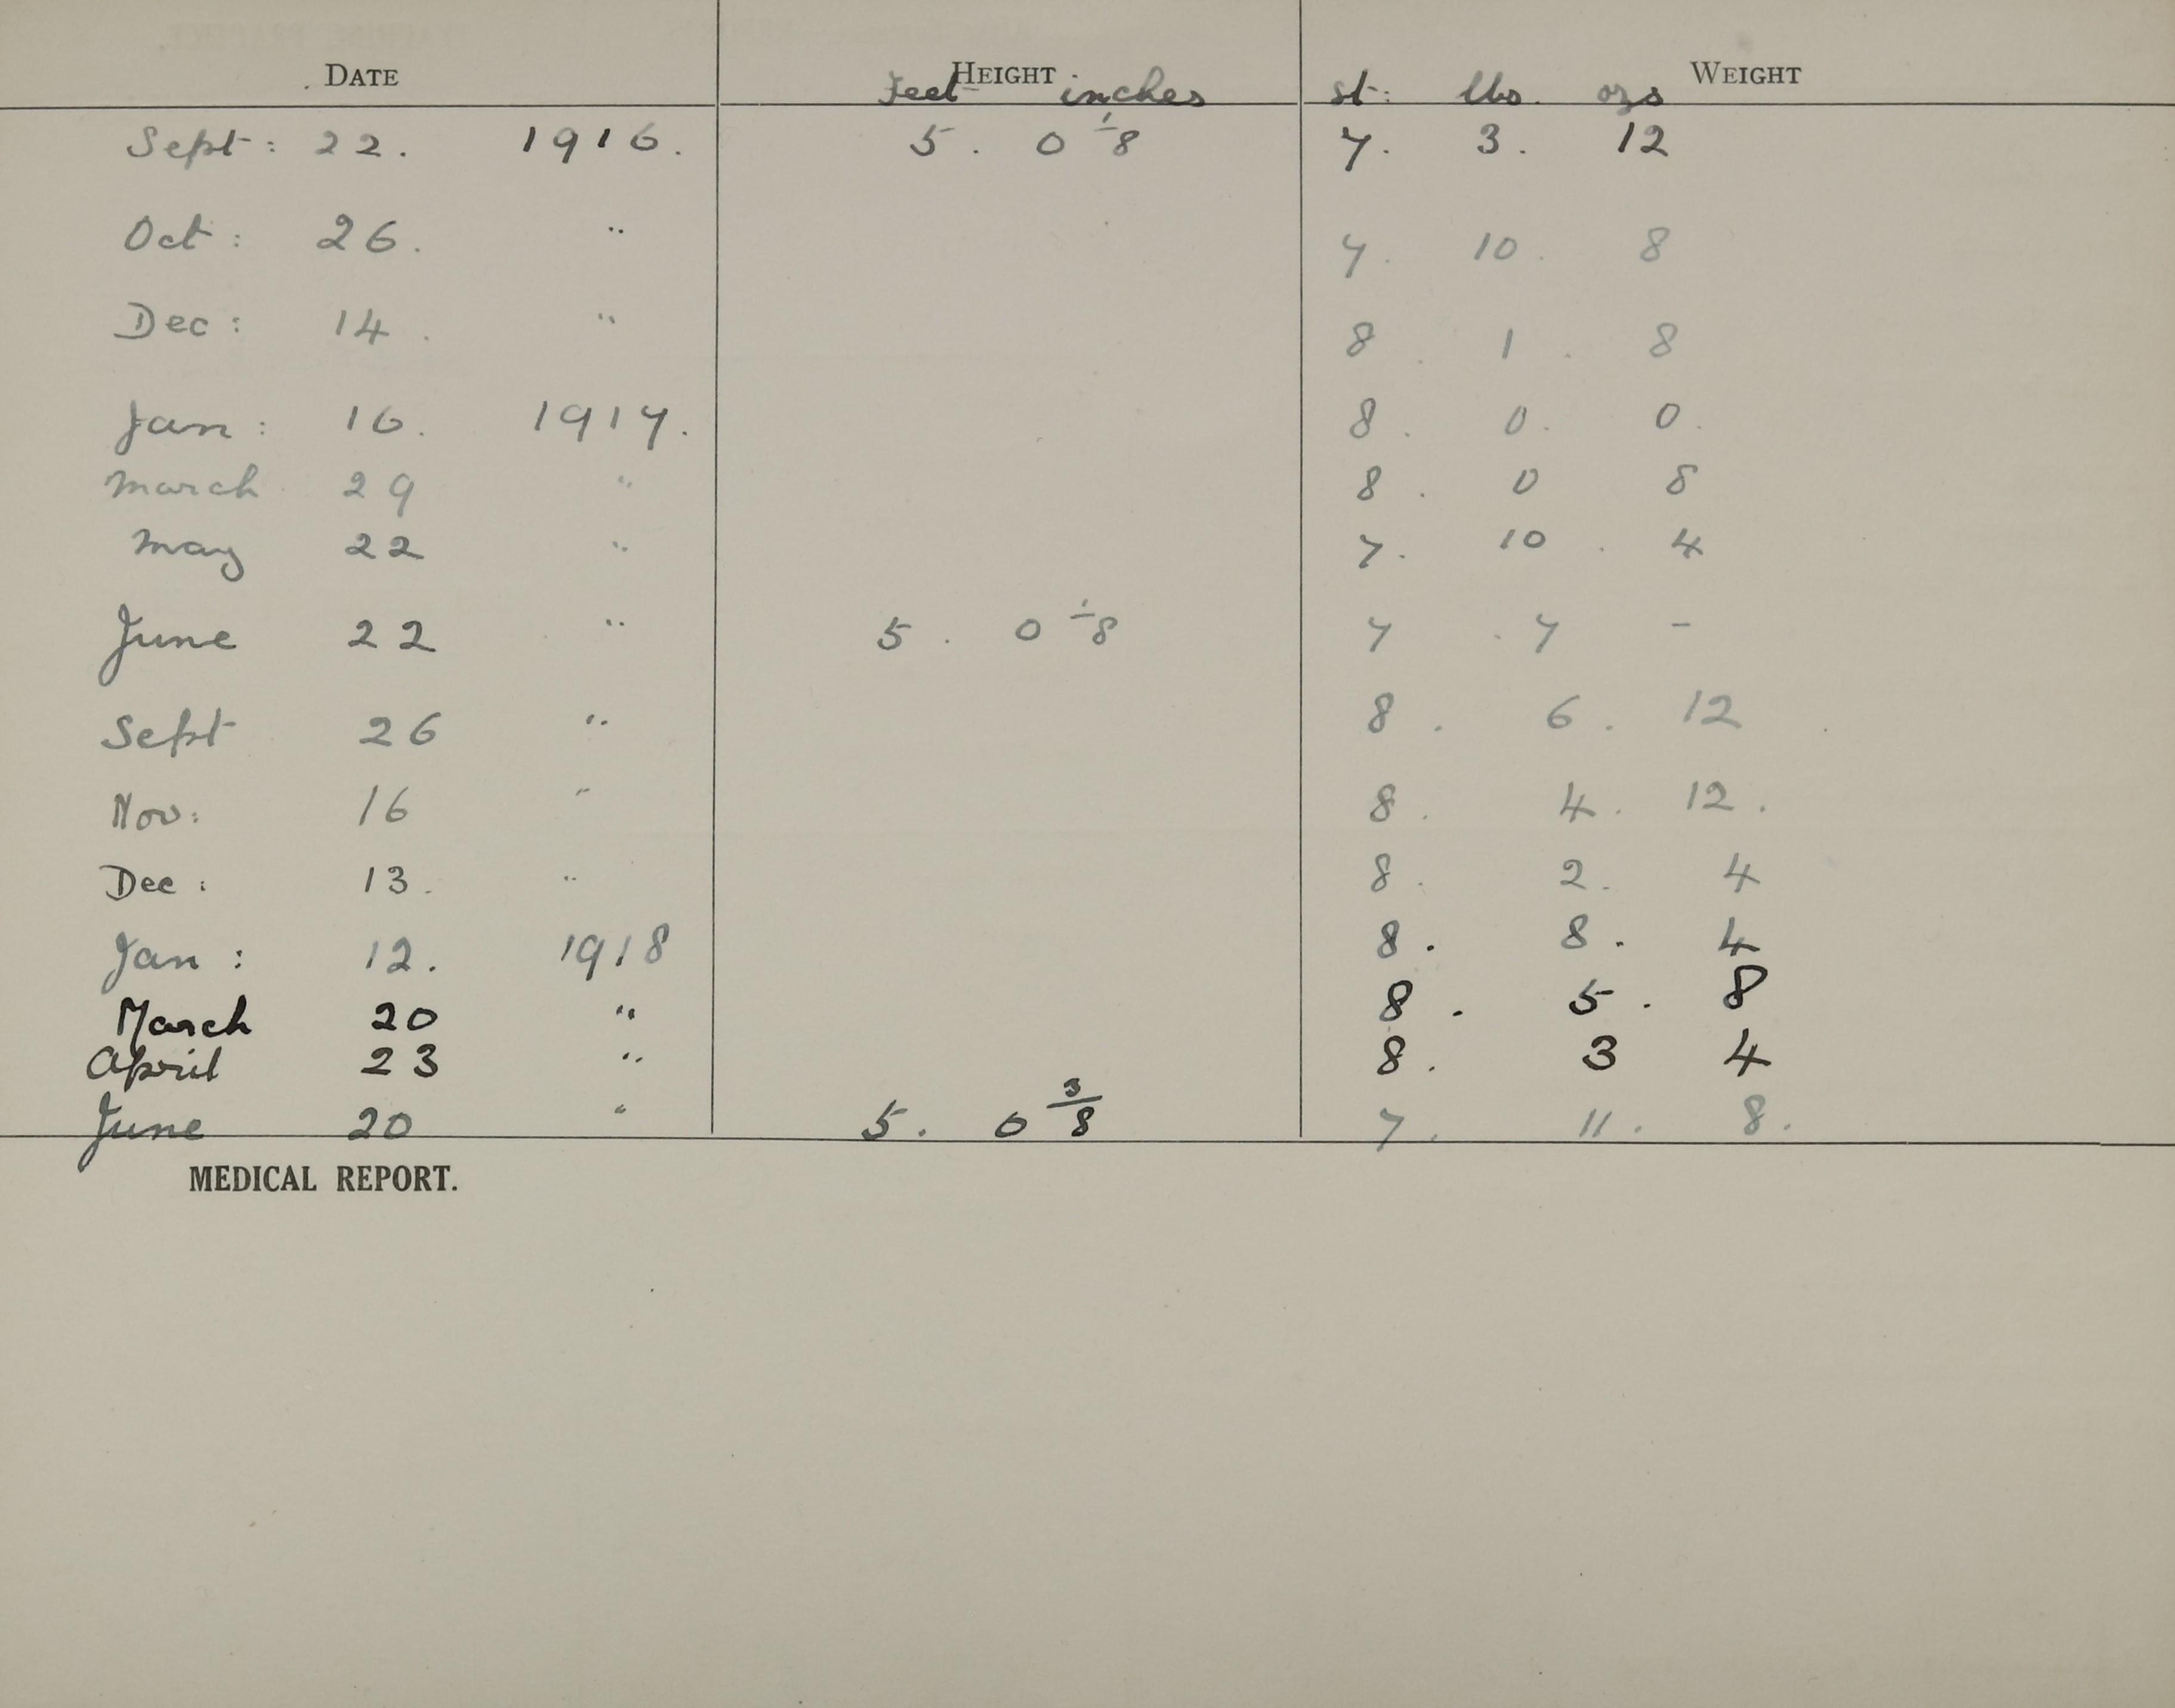 DATE HEIGHT WEIGHT
Feet inches st: lbs. ozs
Sept: 22. 1916. 5. 0 1/8 7. 3. 12
Oct: 26. " 7. 10. 8
Dec: 14. " 8. 1. 8
Jan: 16. 1917. 8. 0. 0.
March 29 " 8. 0 8
May 22 " 7. 10. 4
June 22 " 5. 0 1/8 7. 7 -
Sept 26 " 8. 6. 12
Nov: 16 " 8. 4. 12.
Dec: 13. " 8. 2. 4
Jan: 12. 1918 8. 8. 4
March 20 " 8. 5. 8
April 23 " 8. 3 4
June 20 " 5. 0 3/8 7. 11. 8.
MEDICAL REPORT.